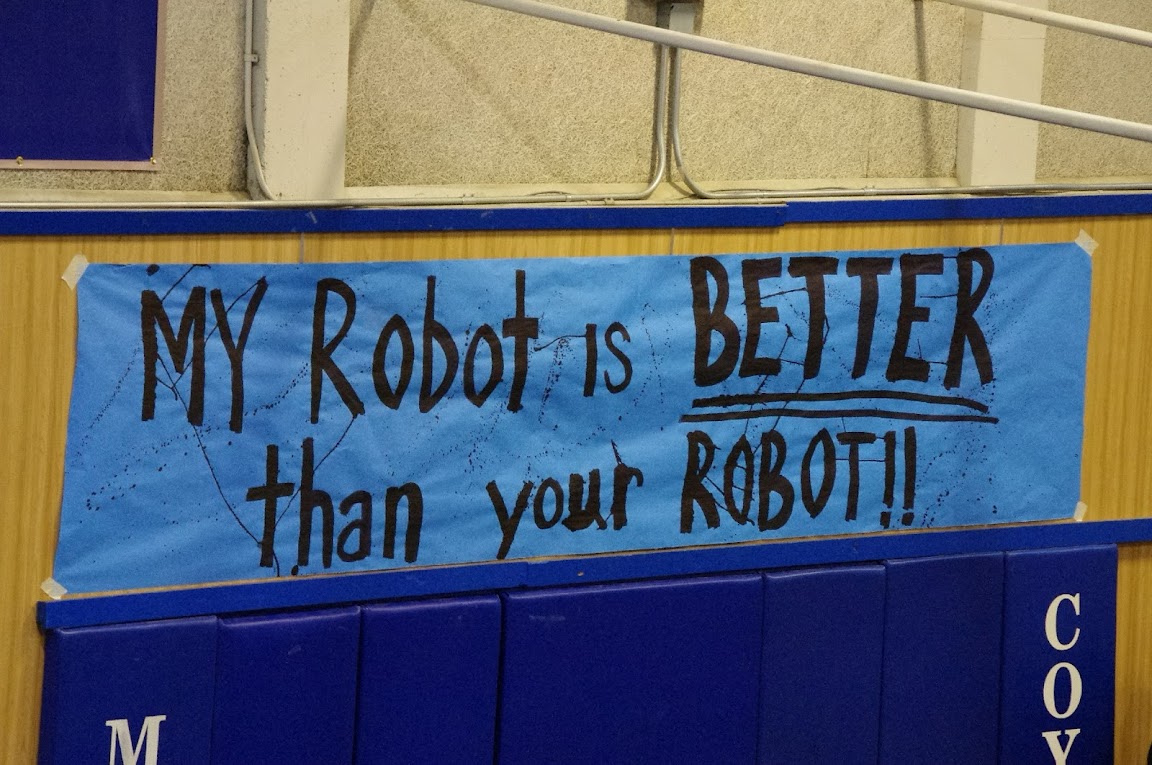 MY Robot is BETTER
than your ROBOT!!
M
C
O
Y